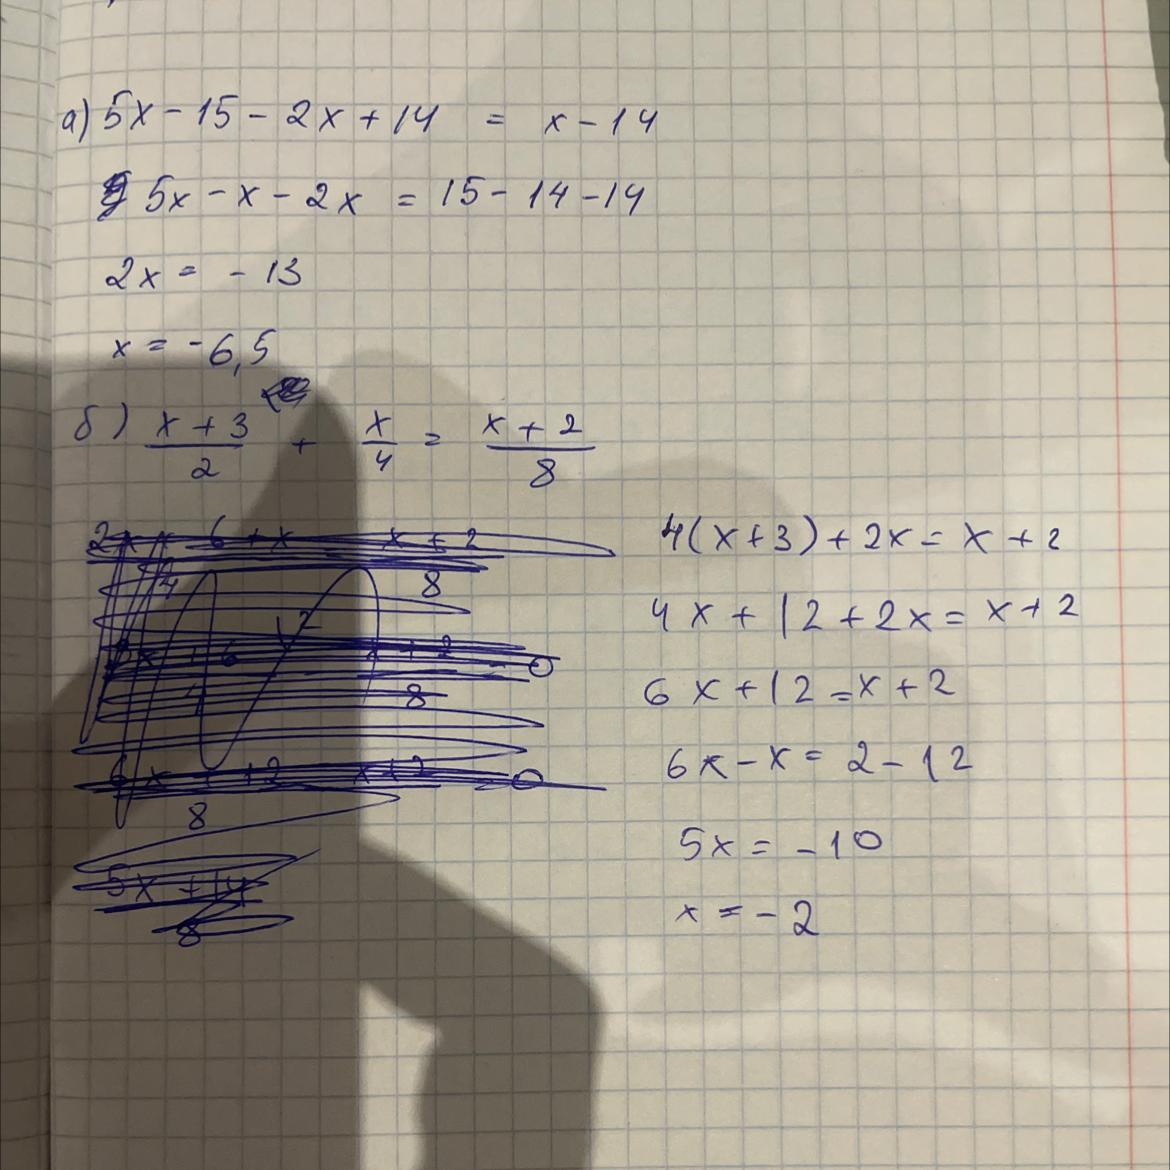 а) 5x - 15 - 2x + 14 = x - 14
5x - x - 2x = 15 - 14 - 14
2x = - 13
x = - 6,5
б) x + 3 / 2 + x / 4 = x + 2 / 8
4(x+3) + 2x = x + 2
4x + 12 + 2x = x + 2
6x + 12 = x + 2
6x - x = 2 - 12
5x = - 10
x = - 2